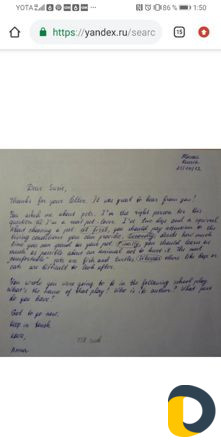 YOTA
86%
1:50
https://yandex.ru/searc
15
Moscow
Russia
Dear Susie,
Thanks for your letter. It was great to hear from you!
You asked me about pets. I'm the right person for this
question as I'm a real pet-lover. I've two dogs and a squirrel.
When choosing a pet at first, you should pay attention to the
living conditions you can provide. Secondly, decide how much
time you can spend on your pet. Finally, you should learn as
much as possible about an animal not to hurt it. The most
"comfortable" pets are fish and turtles. others like dogs or
cats are difficult to look after.
You wrote you were going to be in the following school play.
What's the name of that play? Who is its author? What part
do you have?
Got to go now.
Keep in touch.
Love,